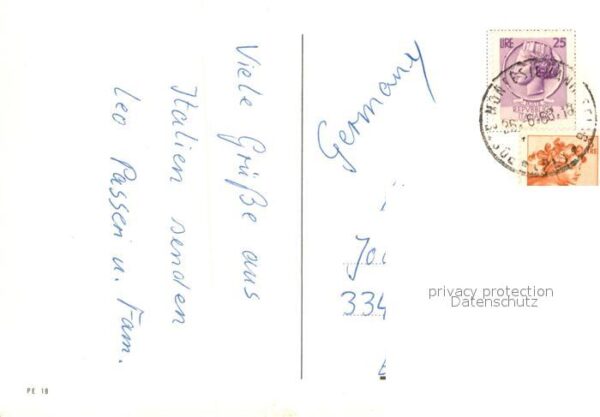 Viele Grüße aus
Italien senden
Leo Passen u. Fam.
Germany
334
LIRE 25
privacy protection
Datenschutz
PE 18